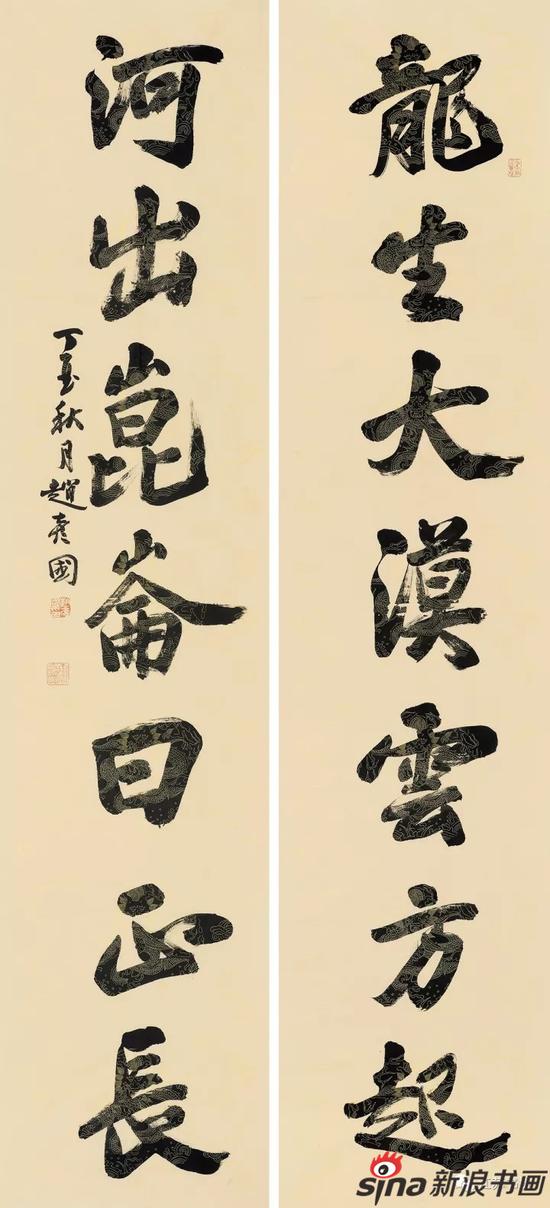 龍生大漠雲方起
河出崑崙日正長
丁亥秋月趙彥國
sina新浪书画